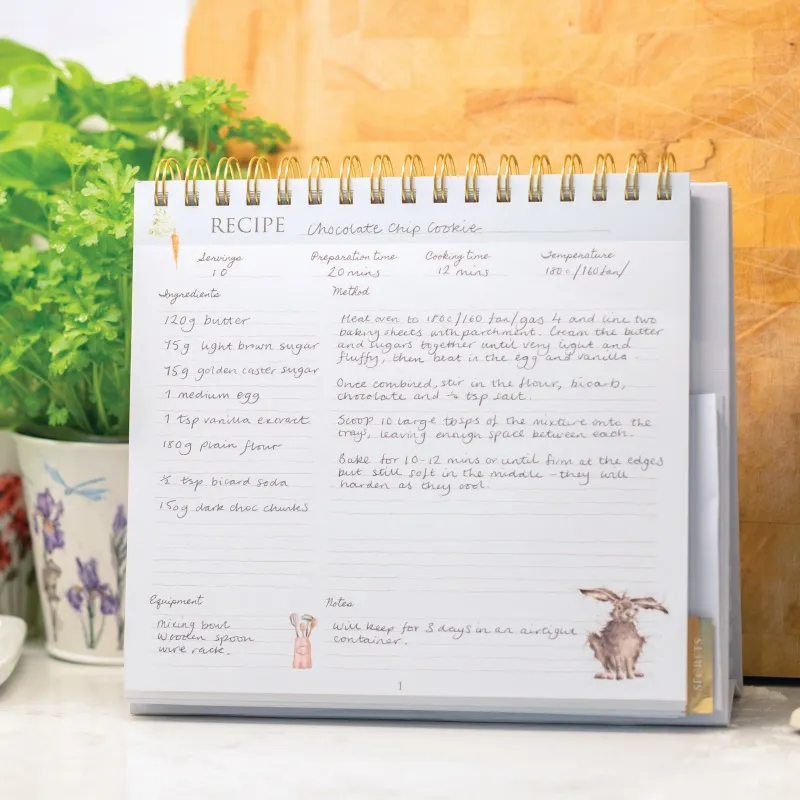 RECIPE Chocolate Chip Cookie
Servings
10
Preparation time
20 mins
Cooking time
12 mins
Temperature
180c/160fan/
Ingredients
120g butter
75g light brown sugar
75g golden caster sugar
1 medium egg
1 tsp vanilla extract
180g plain flour
½ tsp bicarb soda
150g dark choc chunks
Method
Heat oven to 180c/160 fan/gas 4 and line two
baking sheets with parchment. Cream the butter
and sugars together until very light and
fluffy, then beat in the egg and vanilla.
Once combined, stir in the flour, bicarb,
chocolate and tsp salt.
Scoop 10 large tbsps of the mixture onto the
trays, leaving enough space between each.
Bake for 10-12 mins or until firm at the edges
but still soft in the middle - they will
harden as they cool.
Equipment
Mixing bowl
wooden spoon
wire rack.
Notes
Will keep for 3 days in an airtight
container.
1